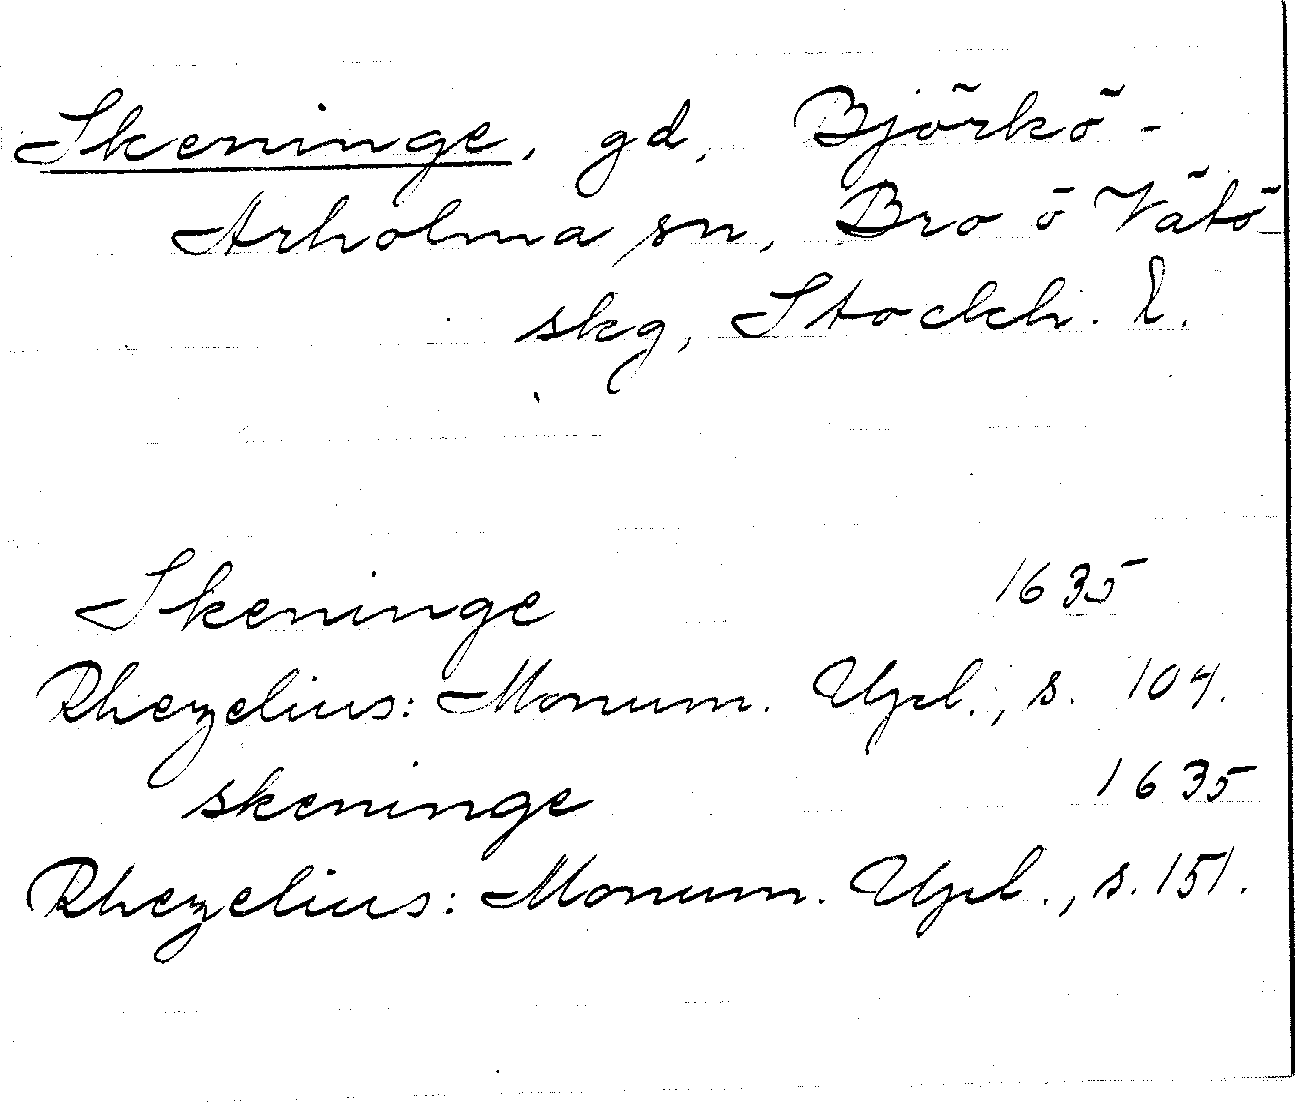 Skeninge, gd, Björkö-
Arholma sn, Bro o Vätö
skg, Stockh. l.
Skeninge 1635
Rhezelius: Monum. Upl., s. 104.
skeninge 1635
Rhezelius: Monum. Upl., s. 151.